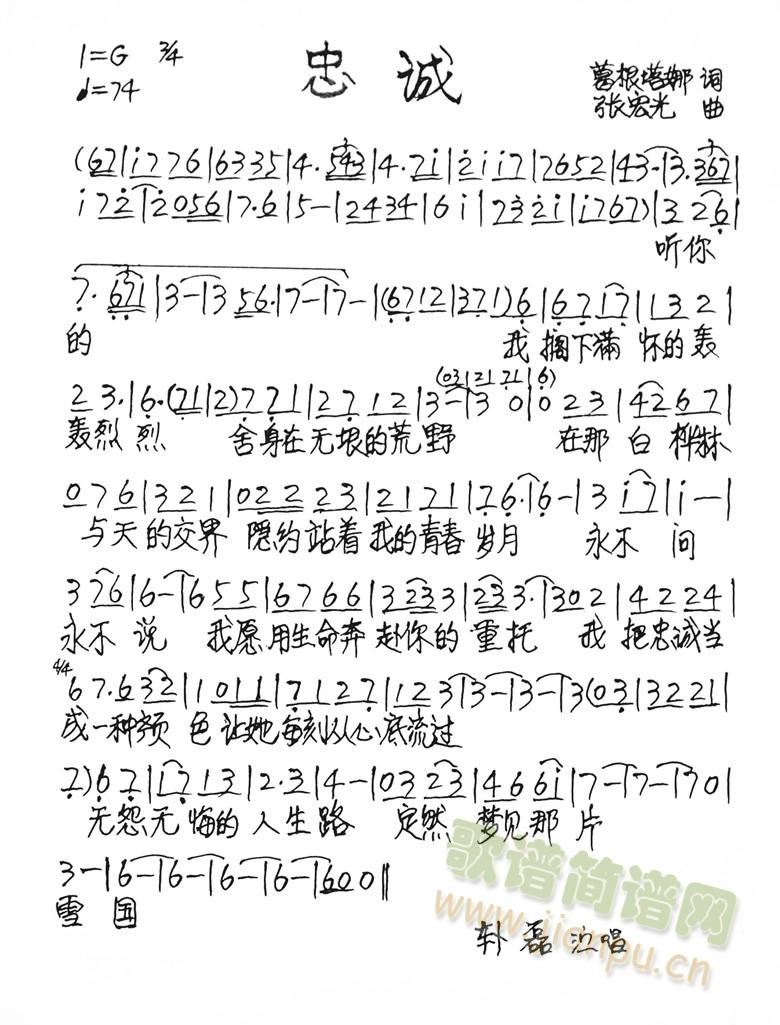 1=G 3/4
忠诚
♩=74
葛根塔娜 词
张宏光 曲
(67|i776|6335|4·543|4·7i|2ii7|7652|43-|3·367|
i72|2056|7·6|5-|2434|6i|732i|i767)|326|
听你
7·671|3-|356·|7-|7-|(6712|371)6|6717|1321|
的 我捆下满怀的轰
(03|2121|6)
23·|6·(71|2)771|2712|3-|30|023|4267|
轰烈烈 舍身在无垠的荒野 在那白桦林
076|321|02223|2171|76·|6-|3i7|i-|
与天的交界 隐约站着我的青春岁月 永不问
376|6-|655|6766|3233|233·|302|4224|
永不说 我愿用生命奔赴你的重托 我把忠诚当
4/4
67·632|1011|7127|123|3-|3-|3(03|3221|
成一种颜色让她每刻从心底流过
7)67|1713|2·3|4-|0323|466i|7-|7-|70|
无怨无悔的人生路 定然梦见那片
3-|6-|6-|6-|6-|600‖
雪国
磊 演唱
歌谱简谱网
www.jianpu.cn